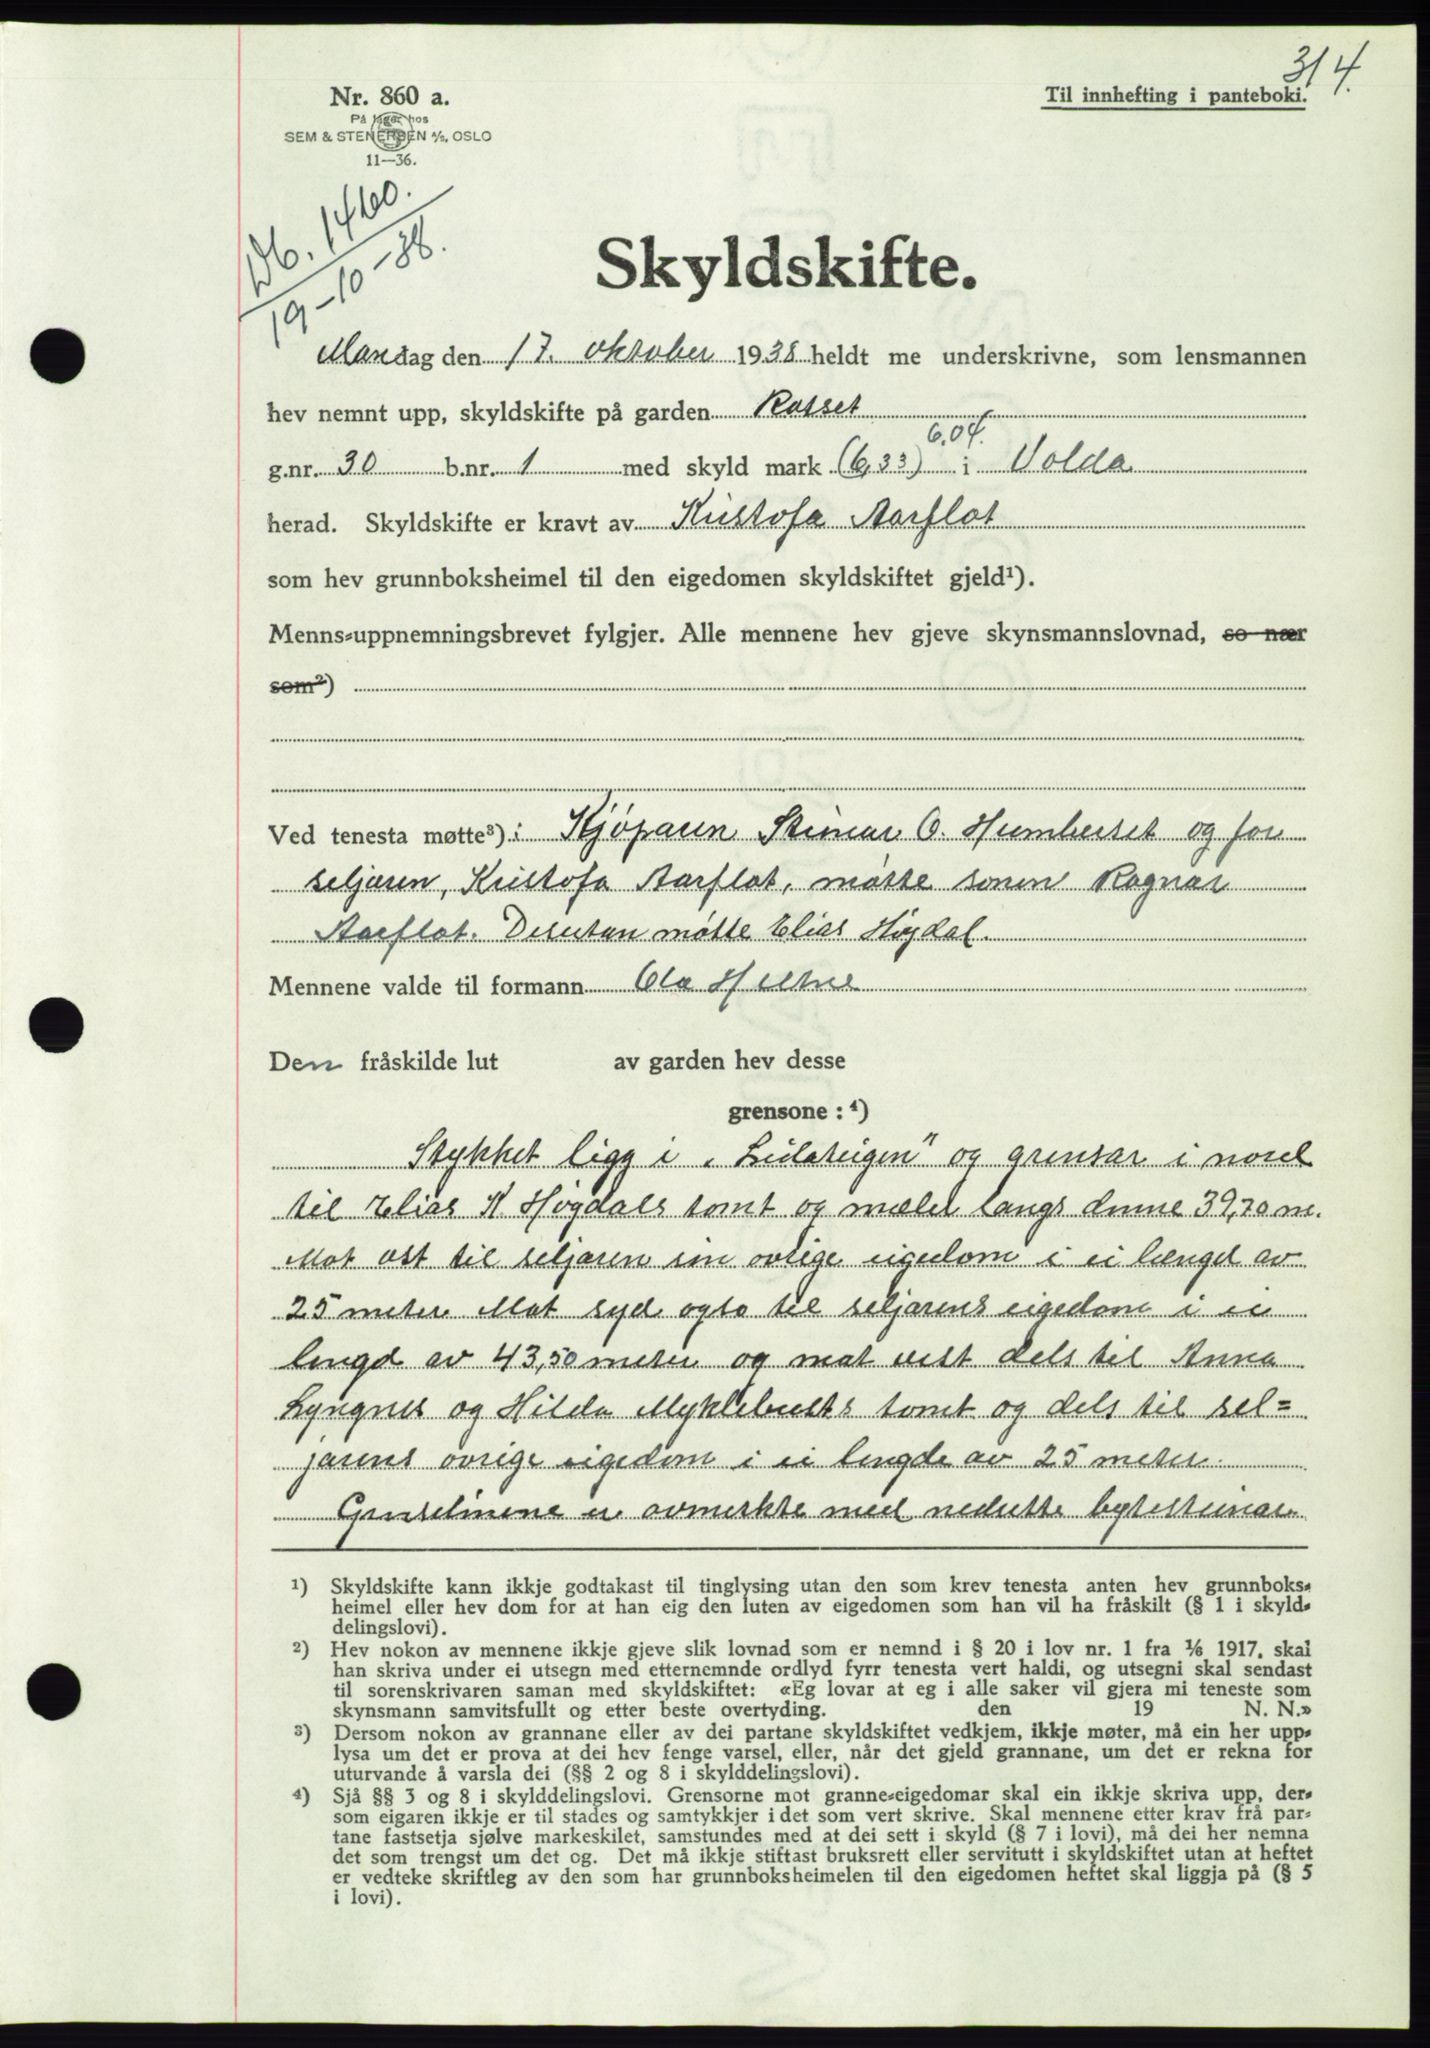 314.
Nr. 860 a.
Til innhefting i panteboki.
På lager hos
SEM & STENERSEN A/S, OSLO
11—36.
Db. 1460.
19-10-38.
Skyldskifte.
Mandag den 17. oktober 1938 heldt me underskrivne, som lensmannen
hev nemnt upp, skyldskifte på garden Rotset
g.nr. 30 b.nr. 1 med skyld mark (6,33) 6,04. i Volda
herad. Skyldskifte er kravt av Kristofa Aarflot
som hev grunnboksheimel til den eigedomen skyldskiftet gjeld¹).
Menns-uppnemningsbrevet fylgjer. Alle mennene hev gjeve skynsmannslovnad, so nær
som²)
Ved tenesta møtte³): Kjöparen Steinar O. Humberset og for
seljaren, Kristofa Aarflot, møtte sonen Ragnar
Aarflot. Desutan møtte Elias Høgdal.
Mennene valde til formann Ola Heltne
Den fråskilde lut av garden hev desse
grensone: ⁴)
Stykket ligg i „Lidateigen" og grensar i nord
til Elias K. Høgdals tomt og mæler langs denne 39,70 m.
Mot ost til seljaren sin øvrige eigedom i ei længd av
25 meter. Mot syd ogso til seljarens eigedom i ei
lengd av 43,50 meter og mot vest dels til Anna
Lyngnes og Hilda Myklebusts tomt og dels til sel=
jarens øvrige eigedom i ei lengde av 25 meter.
Grenselinene er avmerkte med nedsette bytesteinar.
¹) Skyldskifte kann ikkje godtakast til tinglysing utan den som krev tenesta anten hev grunnboks-
heimel eller hev dom for at han eig den luten av eigedomen som han vil ha fråskilt (§ 1 i skyld-
delingslovi).
²) Hev nokon av mennene ikkje gjeve slik lovnad som er nemnd i § 20 i lov nr. 1 fra 1/6 1917, skal
han skriva under ei utsegn med etternemnde ordlyd fyrr tenesta vert haldi, og utsegni skal sendast
til sorenskrivaren saman med skyldskiftet: «Eg lovar at eg i alle saker vil gjera mi teneste som
skynsmann samvitsfullt og etter beste overtyding. den 19 N. N.»
³) Dersom nokon av grannane eller av dei partane skyldskiftet vedkjem, ikkje møter, må ein her upp-
lysa um det er prova at dei hev fenge varsel, eller, når det gjeld grannane, um det er rekna for
uturvande å varsla dei (§§ 2 og 8 i skylddelingslovi).
⁴) Sjå §§ 3 og 8 i skylddelingslovi. Grensorne mot granne-eigedomar skal ein ikkje skriva upp, der-
som eigaren ikkje er til stades og samtykkjer i det som vert skrive. Skal mennene etter krav frå par-
tane fastsetja sjølve markeskilet, samstundes med at dei sett i skyld (§ 7 i lovi), må dei her nemna
det som trengst um det og. Det må ikkje stiftast bruksrett eller servitutt i skyldskiftet utan at heftet
er vedteke skriftleg av den som har grunnboksheimelen til den eigedomen heftet skal liggja på (§ 5
i lovi).